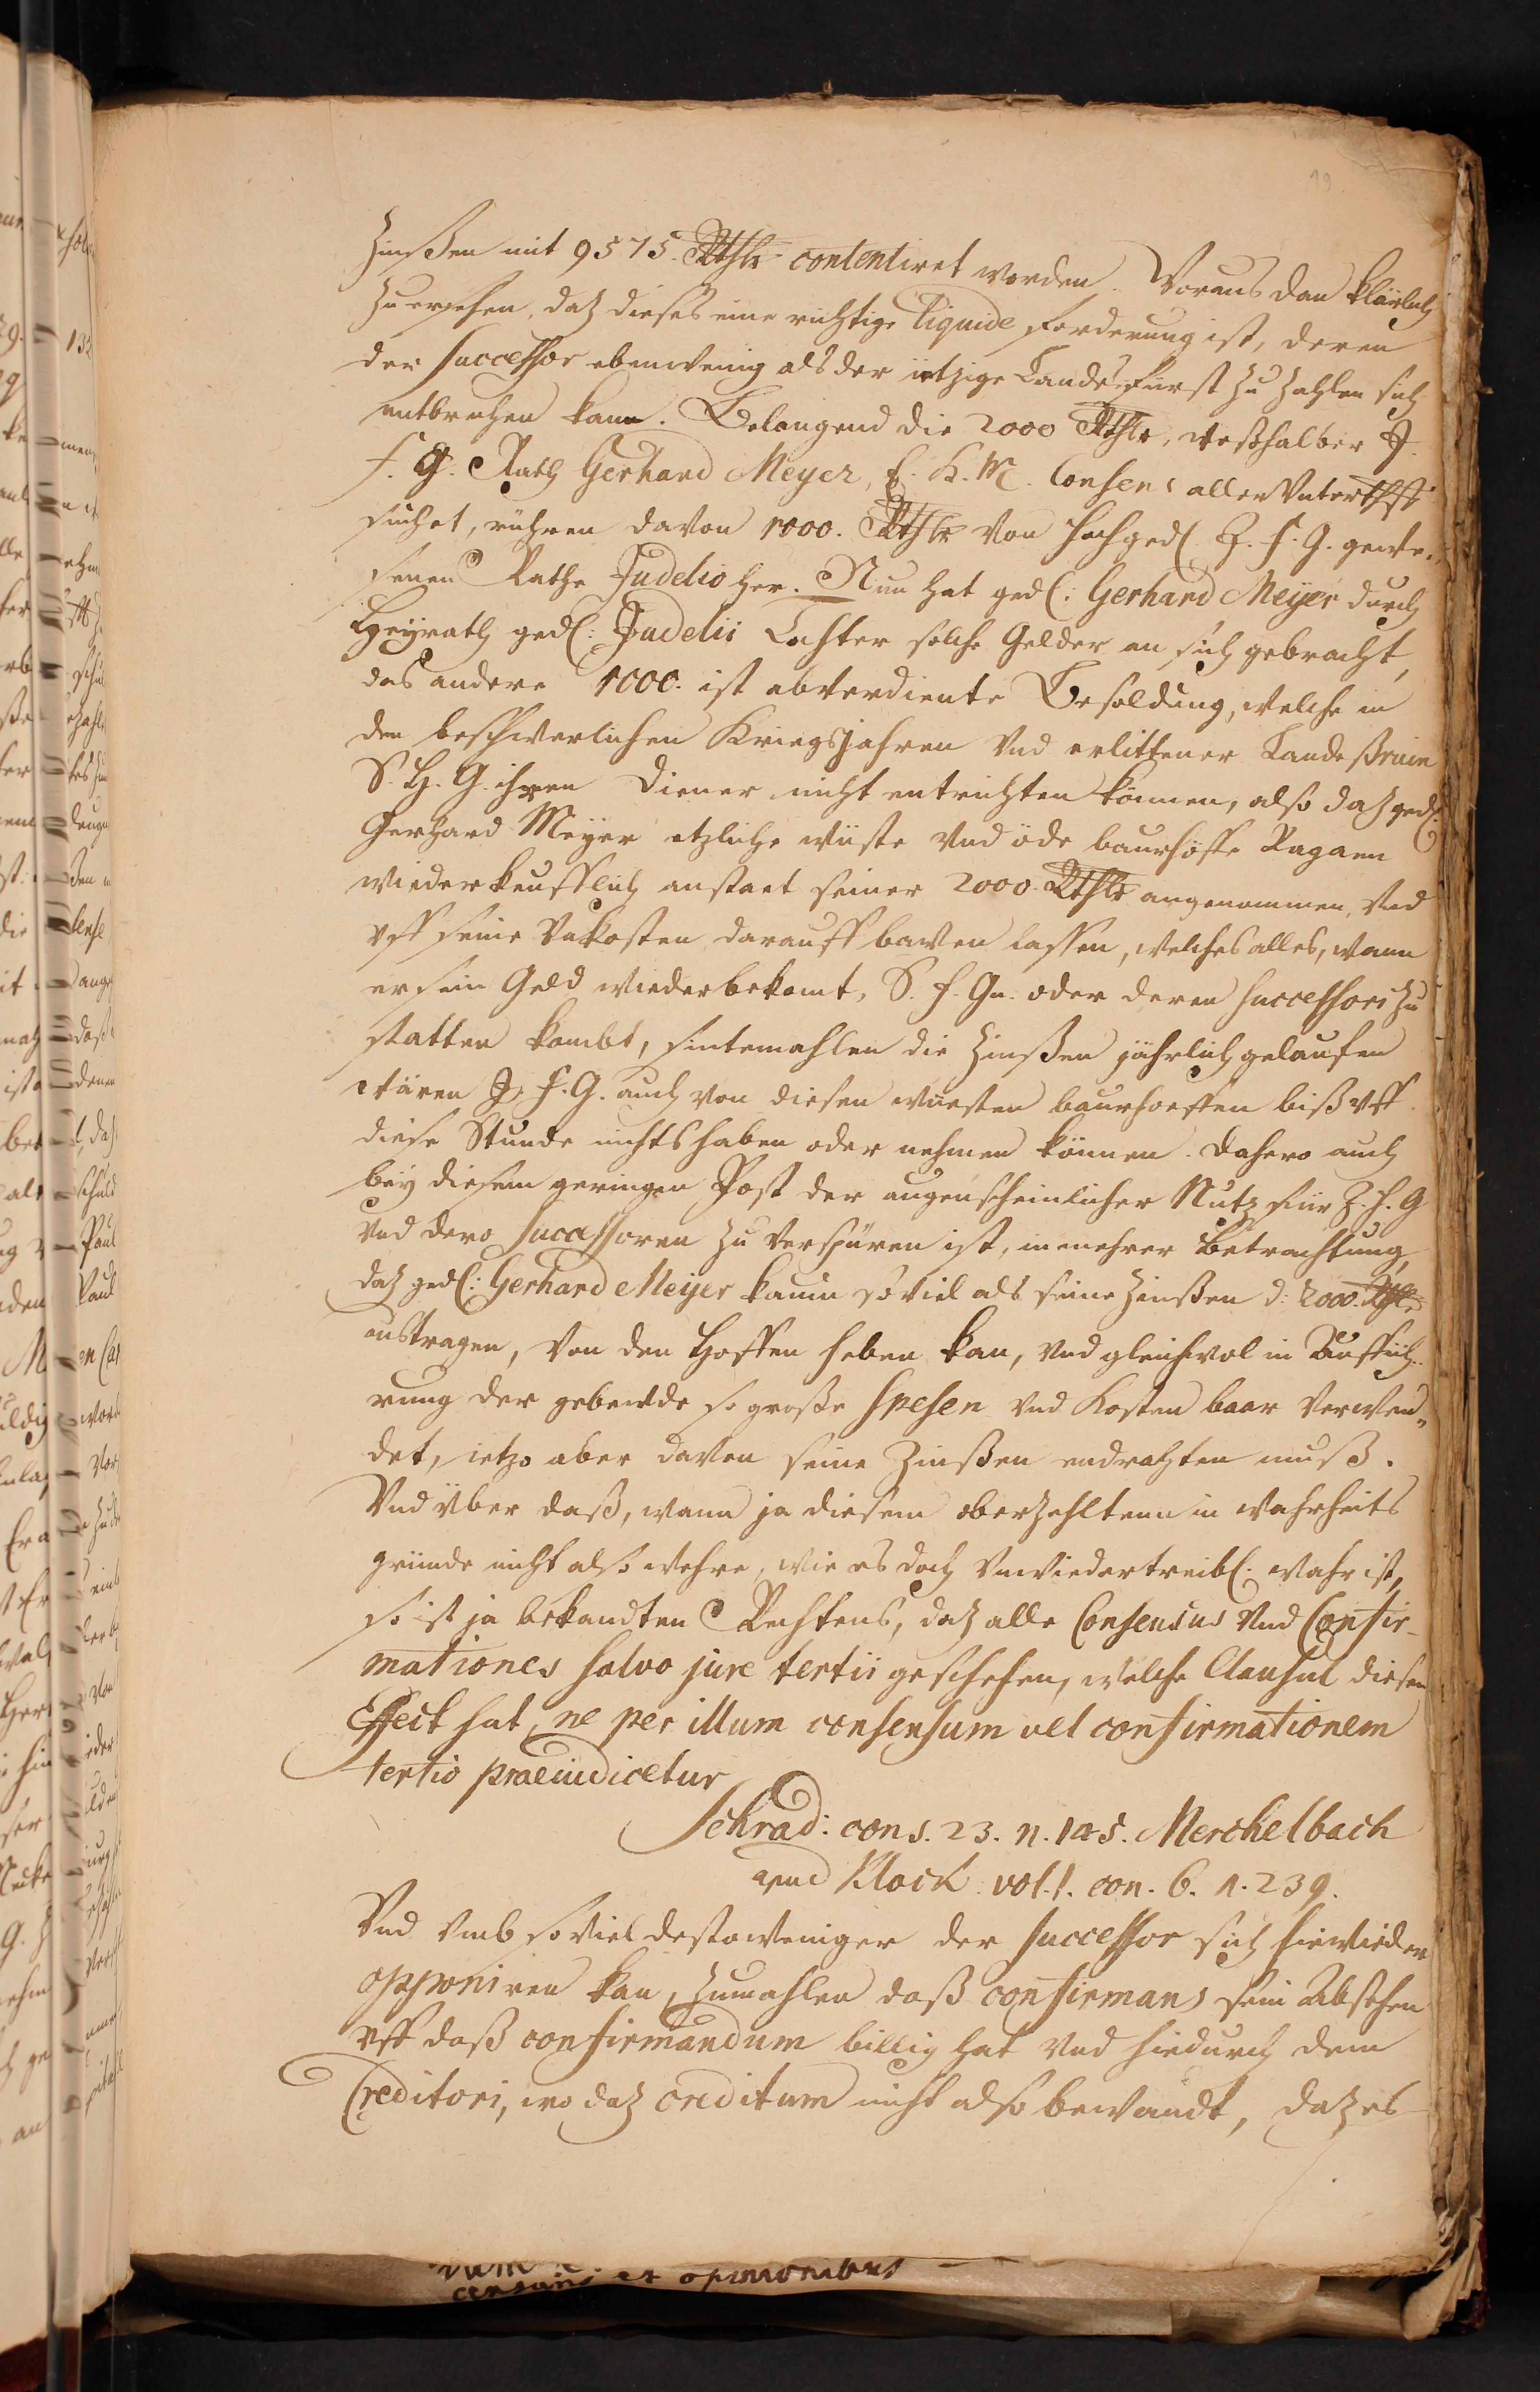 19
Zinßen mit 9575. Rthlr contentiret worden. Woraus dan klärlich
zuersehen, daz dieses eine richtige liquide forderung ist, deren
der Successor ebenwenig als der ietzige Landsfürst zu zahlen sich
entbrechen kann. Belangend die 2000 Rthlr, weßhalber J.
f. G. Rath Gerhard Meyer, E. K. M. Consens allerunterthst
suchet, rühren davon 1000. Rthlr von hochged. J. f. G. gewe-
senen Rathe Judelio her. Nun hat gedl: Gerhard Meyer durch
Heyrath gedl: Judelii Tochter solche Gelder an sich gebracht,
das andere 1000. ist abverdiente Besoldung, welche in
den beschwerlichen Kriegsjahren vnd erlittener Landeßruin
S. H. G. ihren Diener nicht entrichten können, also daz gedl.
Gerhard Meyer etzliche wüste vnd öde baurhöffe
wiederkeufflich anstaet seiner 2000. Rthlr angenommen, vnd
vff seine Vnkosten darauff bawen lassen, welches alles, wann
er sein Geld wiederbekomt, S. f. Gn. oder deren Successori zu
statten kombt, sintemahlen die Zinßen jährlich gelaufen
wären J. f. G. auch von diesen wuesten baurhoeffen biß vff
diese Stunde nichts haben oder nehmen können. Dahero auch
bey diesem geringen Post der augenscheinlicher Nutz für J. f. G
vnd dero Successoren zu verspüren ist, in mehrer Betrachtung,
daz gedl: Gerhard Meyer kaum soviel als seine Zinßen d: 2000. Rthlr
austragen, von den Hoffen heben kan, vnd gleichwol in Auffüh-
rung der gebewde so große Spesen vnd Kosten baar verwen-
det, ietzo aber davon seine Zinßen endrahten muß.
Vnd vber daß, wann ja diesem oberzehltenn in wahrheits
grunde nicht also wehre, wie es doch vnwiedertreibl. wahr ist,
so ist ja bekandten Rechtens, daz alle Consensus vnd Confir-
mationes salvo jure tertii geschehen, welche Clausul diesen
Effect hat, ne per illum consensum vel confirmationem
tertio praeiudicetur
Schrad: cons. 23. n. 145. Merckelbach
vnd Klock vol. 1. con. 6. n. 239.
Vnd vmb so viel destoweniger der Successor sich hiewieder
opponiren kan, zumahlen daß confirmans sein Absehen
vff daß confirmandum billig hat vnd hiedurch dem
Creditori, wo daz creditum nicht also bewandt, daz es
et opinionibus